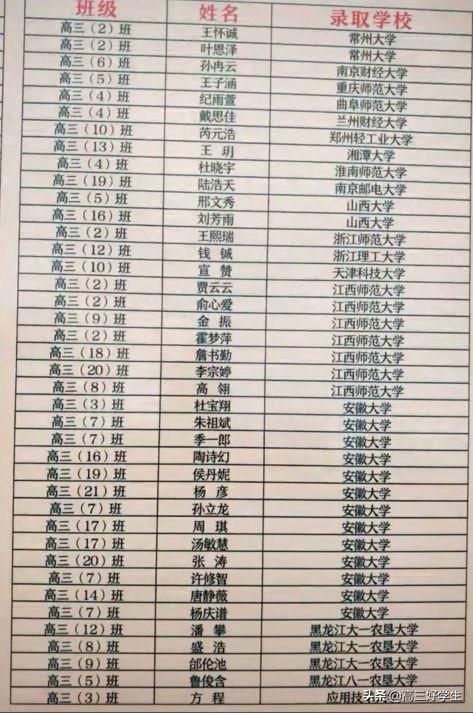 班级 姓名 录取学校
高三（2）班 王怀诚 常州大学
高三（2）班 叶恩泽 常州大学
高三（6）班 孙冉云 南京财经大学
高三（5）班 王子涵 重庆师范大学
高三（4）班 纪雨萱 曲阜师范大学
高三（4）班 戴思佳 兰州财经大学
高三（10）班 芮元浩 郑州轻工业大学
高三（13）班 王玥 湘潭大学
高三（4）班 杜晓宇 淮南师范大学
高三（19）班 陆浩天 南京邮电大学
高三（5）班 邢文秀 山西大学
高三（16）班 刘芳雨 山西大学
高三（2）班 王熙瑞 浙江师范大学
高三（12）班 钱铖 浙江理工大学
高三（10）班 宣赞 天津科技大学
高三（2）班 贾云云 江西师范大学
高三（2）班 俞心爱 江西师范大学
高三（9）班 金振 江西师范大学
高三（2）班 霍梦萍 江西师范大学
高三（18）班 詹书勤 江西师范大学
高三（20）班 李宗婷 江西师范大学
高三（8）班 高翎 江西师范大学
高三（3）班 杜宝翔 安徽大学
高三（7）班 朱祖斌 安徽大学
高三（7）班 季一郎 安徽大学
高三（16）班 陶诗幻 安徽大学
高三（19）班 侯丹妮 安徽大学
高三（21）班 杨彦 安徽大学
高三（7）班 孙立龙 安徽大学
高三（17）班 周琪 安徽大学
高三（17）班 汤敏慧 安徽大学
高三（20）班 张涛 安徽大学
高三（7）班 许修智 安徽大学
高三（14）班 唐静薇 安徽大学
高三（7）班 杨庆谱 安徽大学
高三（12）班 潘攀 黑龙江大一农垦大学
高三（8）班 盛浩 黑龙江大一农垦大学
高三（9）班 邰伦池 黑龙江大一农垦大学
高三（5）班 鲁俊含 黑龙江八一农垦大学
高三（3）班 方程 应用技术
头条 @高三好学生